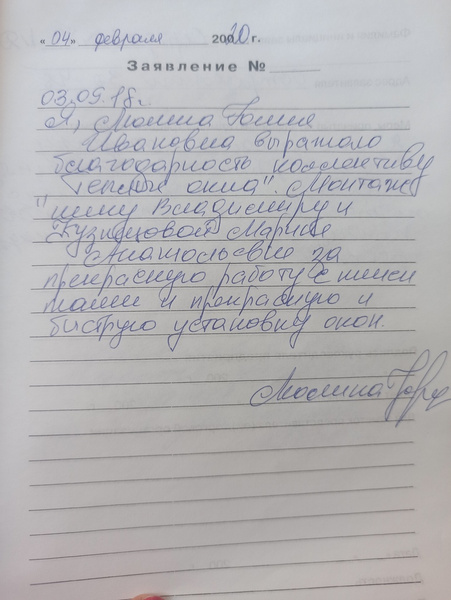 "04" февраля 2020 г.
Заявление №
03.09.18г.
Я, Молина Галина
Ивановна выражаю
благодарность коллективу
"Теплые окна". Монтаж
нику Владимиру и
Кузнецовой Марине
Анатольевне за
прекрасную работу с клиен
тами и прекрасную и
быструю установку окон.